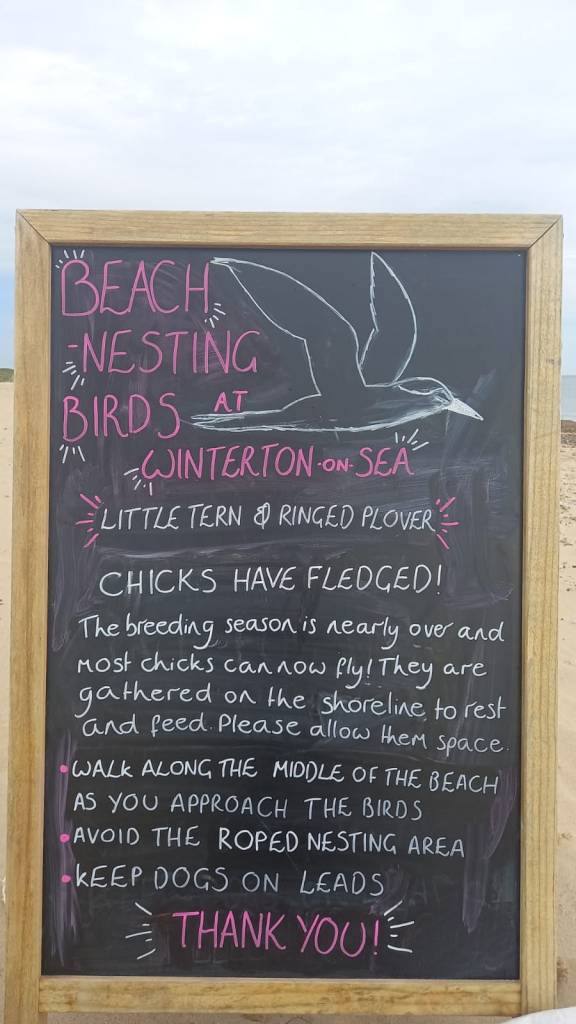 BEACH
-NESTING
BIRDS AT
WINTERTON-ON-SEA
LITTLE TERN & RINGED PLOVER
CHICKS HAVE FLEDGED!
The breeding season is nearly over and
most chicks can now fly! They are
gathered on the shoreline to rest
and feed. Please allow them space.
• WALK ALONG THE MIDDLE OF THE BEACH
AS YOU APPROACH THE BIRDS
• AVOID THE ROPED NESTING AREA
• KEEP DOGS ON LEADS
THANK YOU!